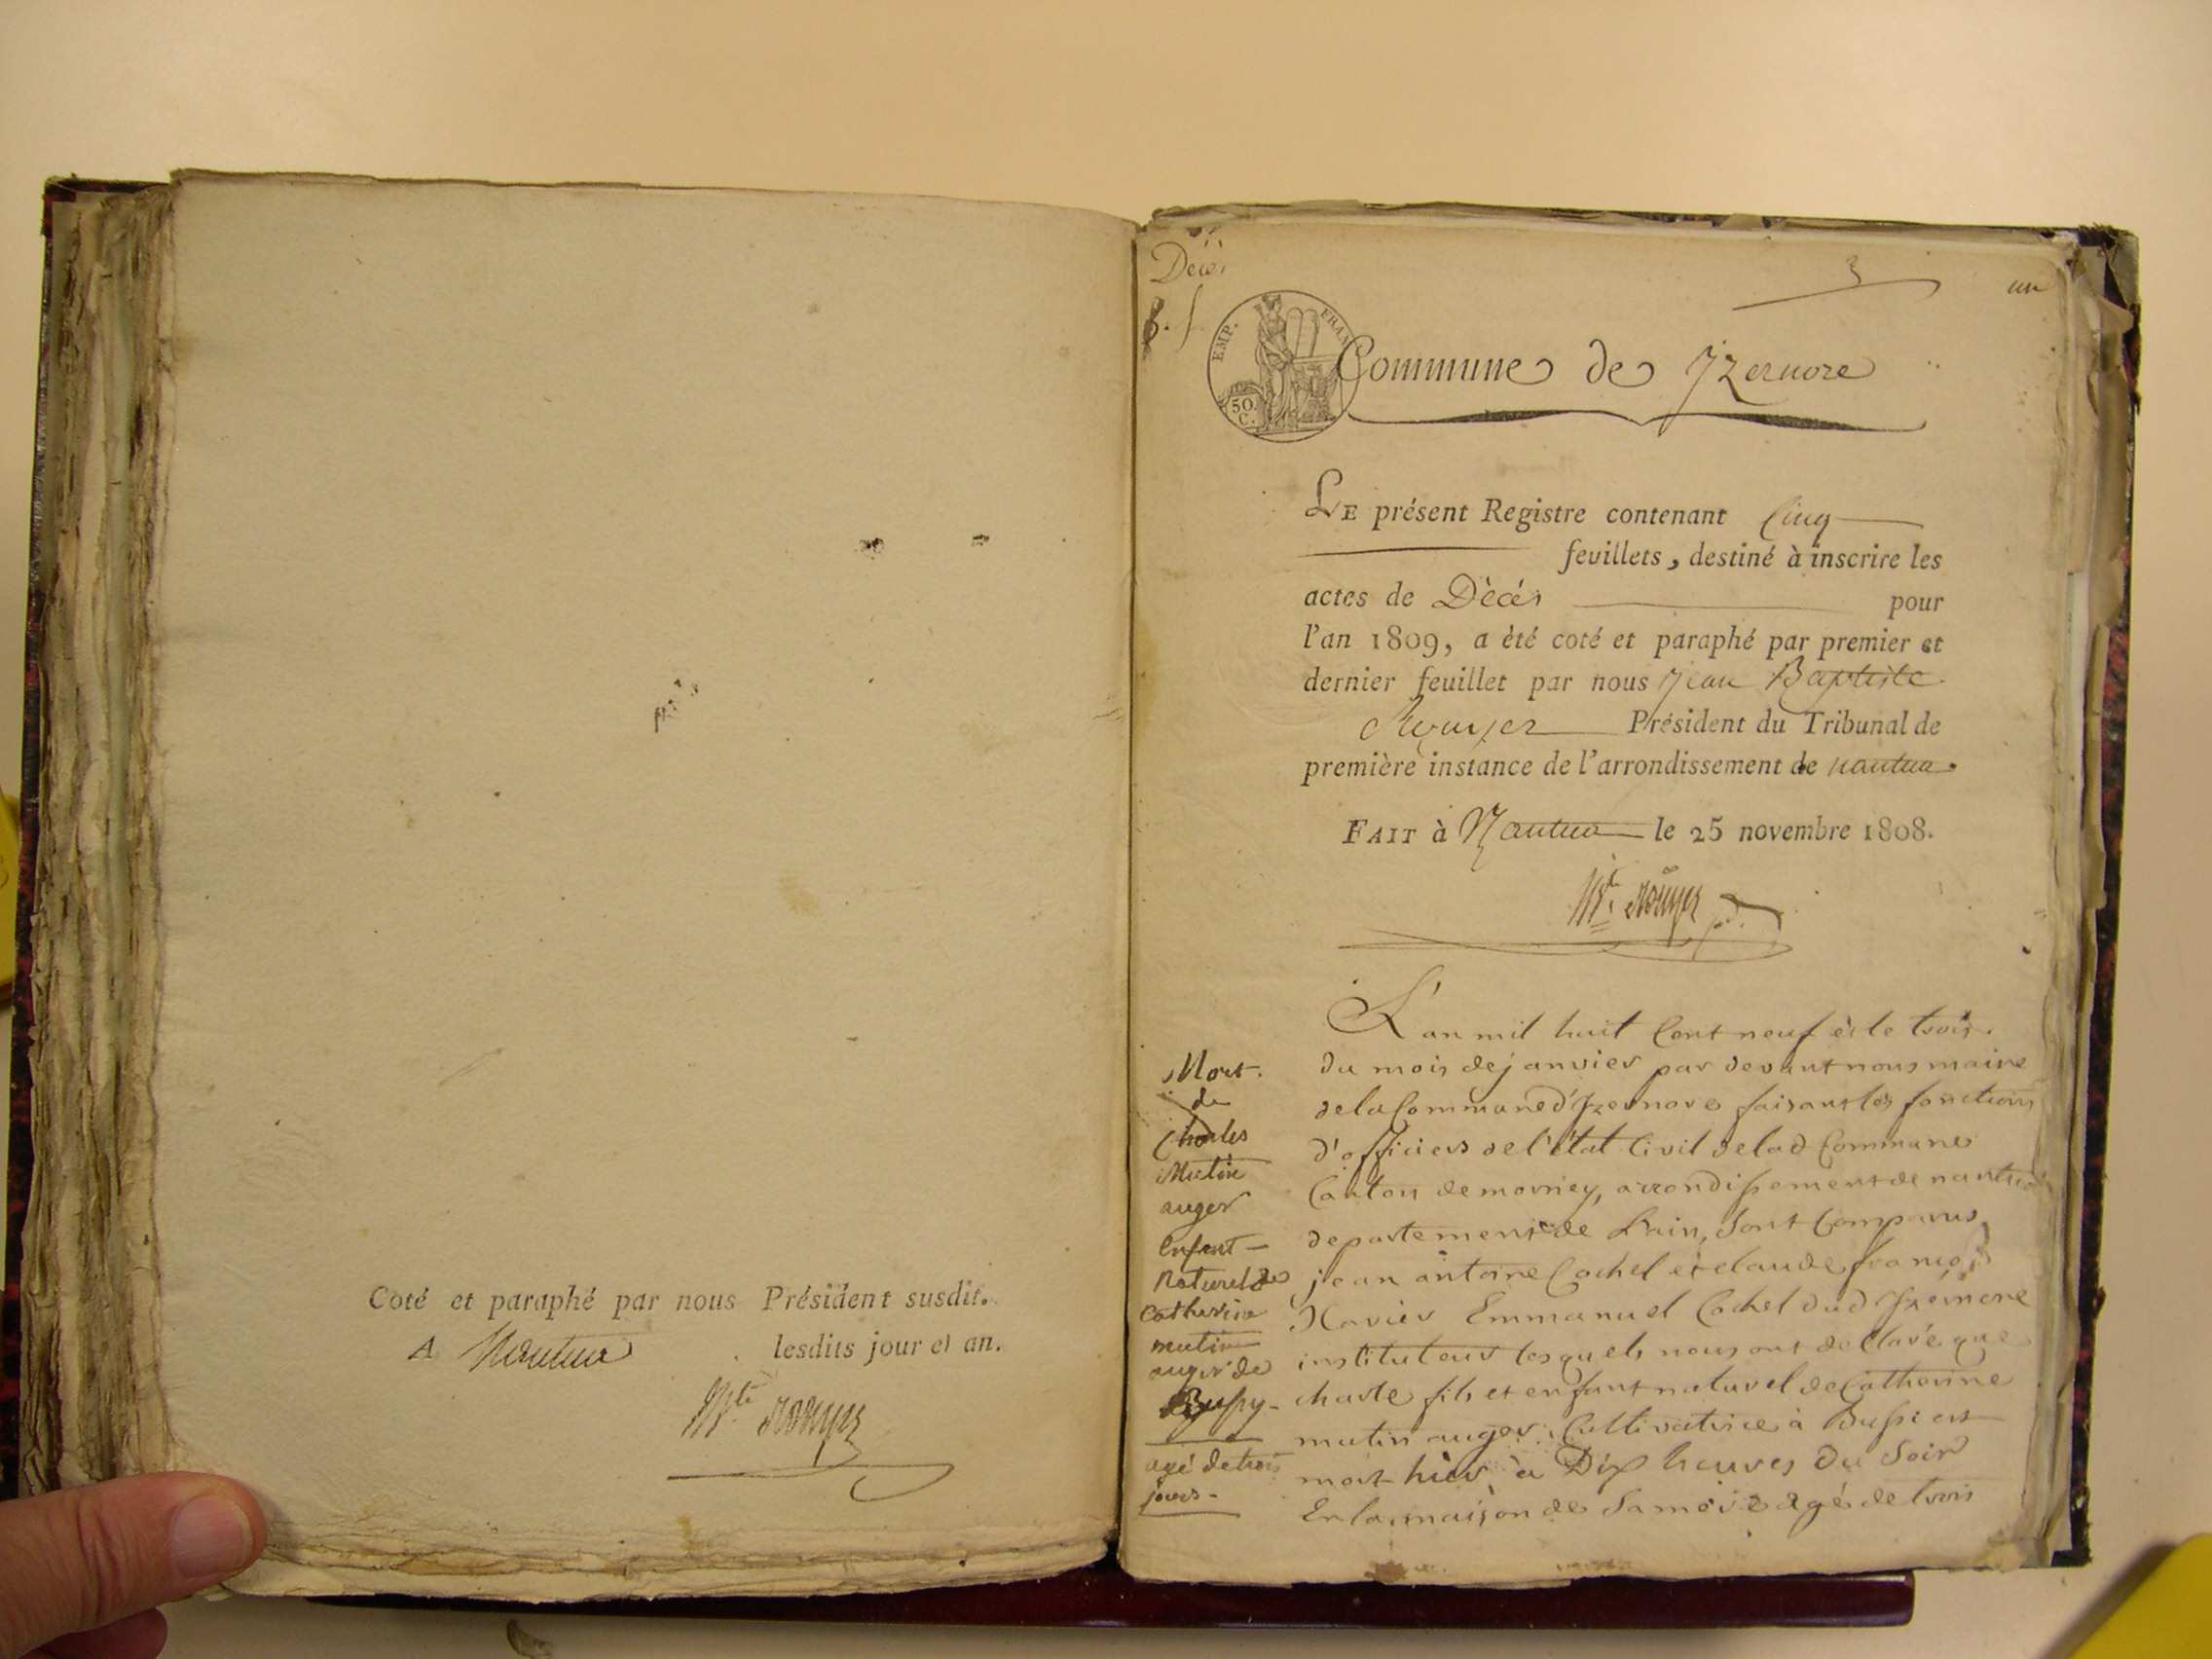 Coté et paraphé par nous Président susdit.
A Nantua lesdits jour et an.
Bte Rouyer
Décès
un
EMP. FRAN
50 C.
Commune de Izernore
LE présent Registre contenant Cinq
feuillets, destiné à inscrire les
actes de Décès pour
l'an 1809, a été coté et paraphé par premier et
dernier feuillet par nous Jean Baptiste
Rouyer Président du Tribunal de
première instance de l'arrondissement de nantua.
FAIT à Nantua le 25 novembre 1808.
Bte Rouyer
Mort
de
Charles
Mutin
auger
Enfant
naturel de
Catherine
mutin
auger de
Bussy
agé de trois
jours
L'an mil huit Cent neuf et le trois
du mois de janvier par devant nous maire
de la Commune d'Izernore faisant les fonctions
d'officiers de l'état Civil de lad Commune
Canton de morney, arrondissement de nantua
departement de Lain, sont Comparus
jean antoine Cochel et claude francois
Xavier Emmanuel Cochel dud Izernore
instituteurs lesquels nous ont declaré que
charle fils et enfant naturel de Catherine
mutin auger Cultivatrice à Bussi est
mort hier à Dix heures du Soir
En la maison de Sa mère agé de trois